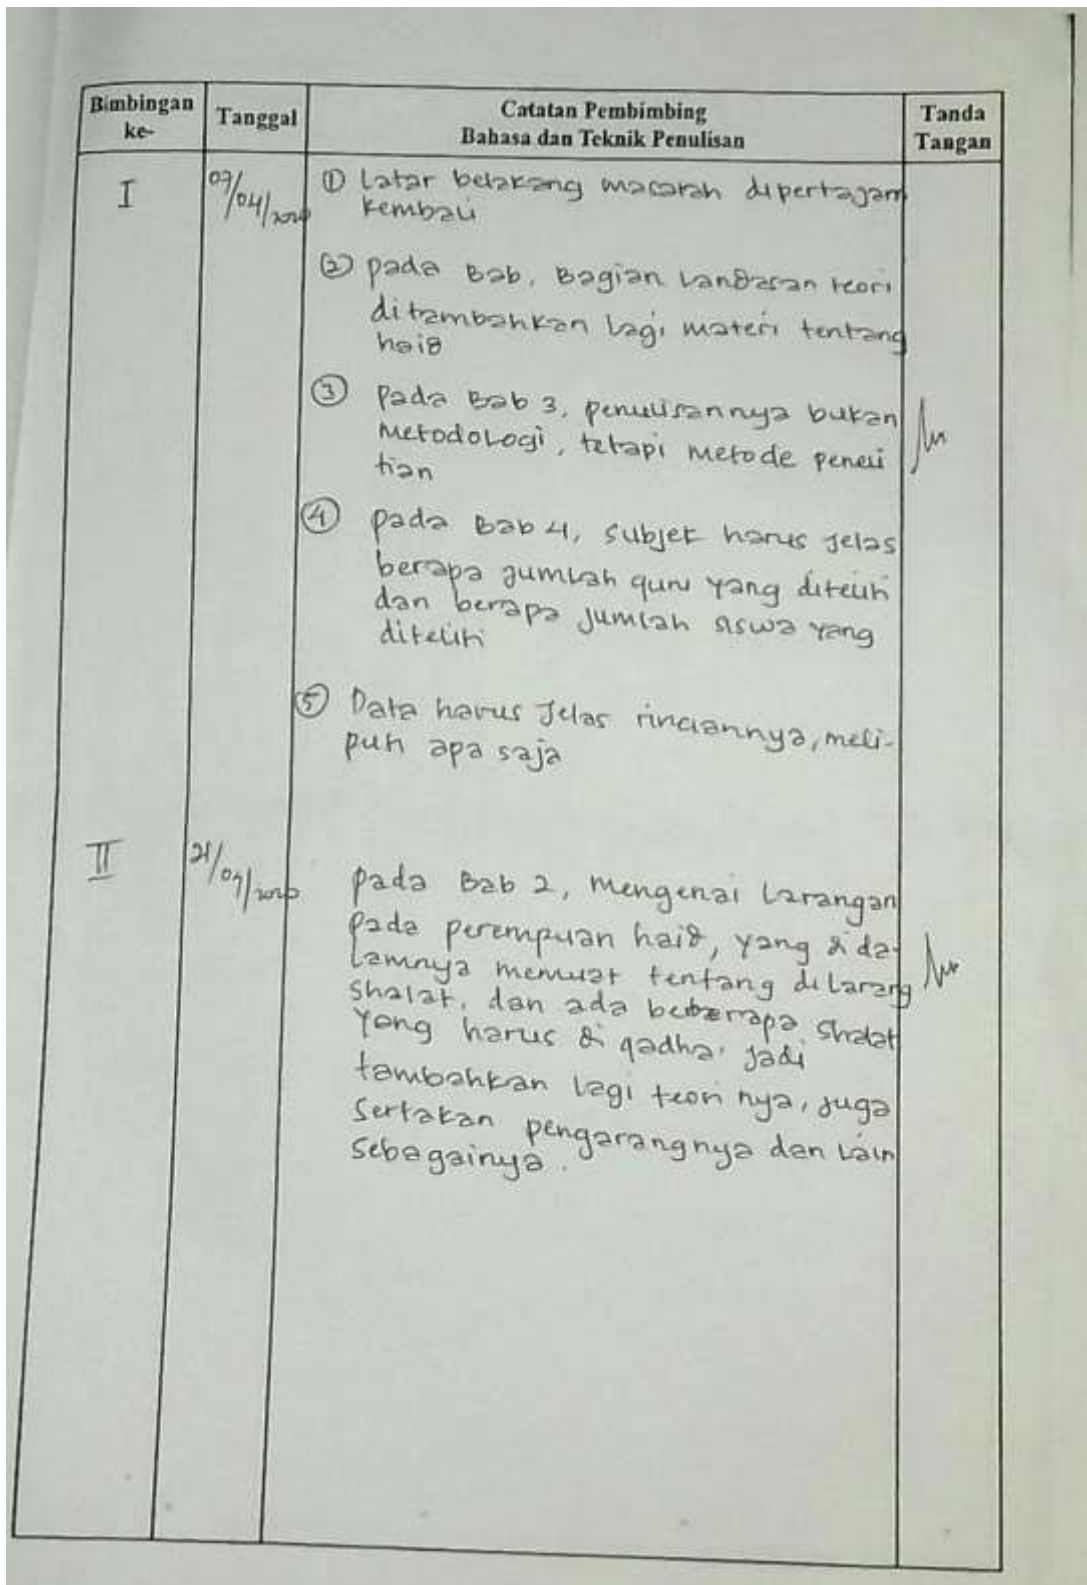 Bimbingan ke-
Tanggal
Catatan Pembimbing
Bahasa dan Teknik Penulisan
Tanda Tangan
I
① Latar belakang masalah dipertajam
kembali
② pada Bab, Bagian landasan teori
ditambahkan lagi materi tentang
haid
③ Pada Bab 3, penulisannya bukan
Metodologi, tetapi metode peneli
tian
④ pada Bab 4, subjek harus jelas
berapa jumlah guru yang diteliti
dan berapa jumlah siswa yang
diteliti
⑤ Data harus Jelas rinciannya, meli-
puti apa saja
II
pada Bab 2, Mengenai Larangan
pada perempuan haid, yang di da-
lamnya memuat tentang dilarang
shalat, dan ada beberapa shalat
yang harus di qadha. jadi
tambahkan lagi teori nya, juga
Sertakan pengarangnya dan lain
sebagainya.